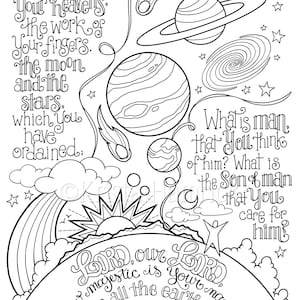 Your heavens,
the work of
Your fingers,
the moon
and the
stars,
which You
have
ordained;
What is man
that You think
of him? What is
the Son of man
that You
care for
him?
LORD, our LORD
majestic is Your
all the earth